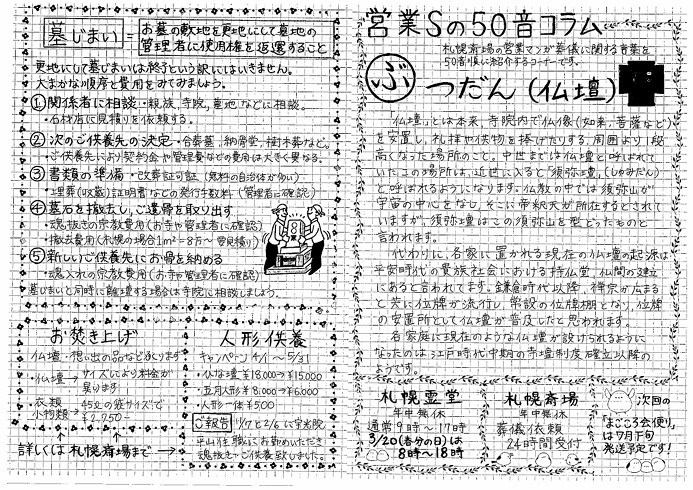 墓じまい = お墓の敷地を更地にして墓地の
管理者に使用権を返還すること
更地にして墓じまいは終了という訳にはいきません。
大まかな順序と費用をみてみましょう。
①関係者に相談・親族、寺院、墓地などに相談。
・石材店に見積りを依頼する。
②次のご供養先の決定・合葬墓、納骨堂、樹木葬など。
・ご供養先により契約金や管理費などの費用は大きく異なる。
③書類の準備・改葬許可証(無料の自治体が多い)
・埋葬(収蔵)証明書などの発行手数料(管理者に確認)
④墓石を撤去し、ご遺骨を取り出す
・魂抜きの宗教費用(お寺や管理者に確認)
・撤去費用(札幌の場合1m²=8万〜 要見積り)
⑤新しいご供養先にお骨を納める
・魂入れの宗教費用(お寺や管理者に確認)
墓じまいと同時に離壇する場合は寺院に相談しましょう。
お焚き上げ
仏壇・想い出の品などあります
・仏壇→サイズにより料金が
異なります
・衣類
小物類→45ℓの袋サイズで
詳しくは札幌斎場まで→
人形供養
キャンペーン4/1〜5/31
・ひな壇¥18,000→¥15,000
・五月人形¥8,000→¥6,000
・人形一体¥500
ご報告 1/17と2/6に宝水院
平山住職にお勤めいただき
魂抜き・ご供養致しました。
営業Sの50音コラム
札幌斎場の営業マンが葬儀に関する言葉を
50音順に紹介するコーナーです。
ぶつだん(仏壇)
「仏壇」とは本来、寺院内で仏像(如来、菩薩など)
を安置し、礼拝や供物を捧げたりする、周囲より1段
高くなった場所のこと。中世までは仏壇と呼ばれて
いたこの場所は、近世に入ると「須弥壇」(しゅみだん)
と呼ばれるようになります。仏教の中では須弥山が
宇宙の中心をなし、そこに帝釈天が所在するとされて
いますが、須弥壇はこの須弥山を型どったものと
言われます。
代わりに、各家に置かれる現在の仏壇の起源は
平安時代の貴族社会における持仏堂、仏間の建立
にあると言われてます。鎌倉時代以降、禅宗が広まる
と共に位牌が流行し、常設の位牌棚となり、位牌
の安置所として仏壇が普及したと思われます。
各家庭に現在のような仏壇が設けられるように
なったのは、江戸時代中期の寺壇制度確立以降の
ようです。
札幌霊堂
年中無休
通常9時〜17時
3/20(春分の日)は
8時〜18時
札幌斎場
年中無休
葬儀依頼
24時間受付
次回の
「まごころ会便り」
は7月下旬
発送予定です!